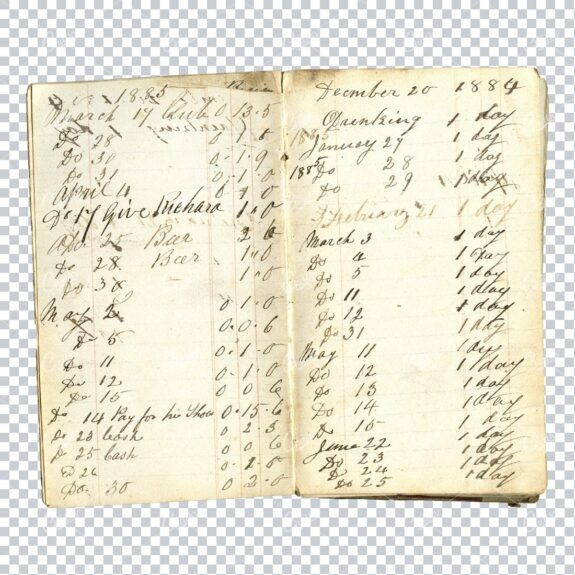 1885
March 17 Club 0 13.5
Do 28
Do 30 0.1.9
Do 31 0.1.0
April 4
Do 17 Give Richard 1.0
Do 25 Bear 2 6
Do 28 Beer 1.0
Do 30 1.0
May 2 0.1.0
Do 5 0.0.6
Do 11 0.1.0
Do 12 0.1.0
Do 15 0 0 6
Do 14 Pay for his Shoes 0.15.6
Do 23 Cash 0 2 3
Do 25 Cash 0 0 6
Do 26
Do 30 0 2.0
December 20 1884
Drinking 1 day
1885 January 27 1 day
1885 Do 28 1 day
Do 29 1 day
February 21 1 day
March 3 1 day
Do 4 1 day
Do 5 1 day
Do 11 1 day
Do 12 1 day
Do 31 1 day
May 11 1 day
Do 12 1 day
Do 13 1 day
Do 14 1 day
Do 15 1 day
June 22 1 day
Do 23 1 day
Do 24 1 day
Do 25 1 day